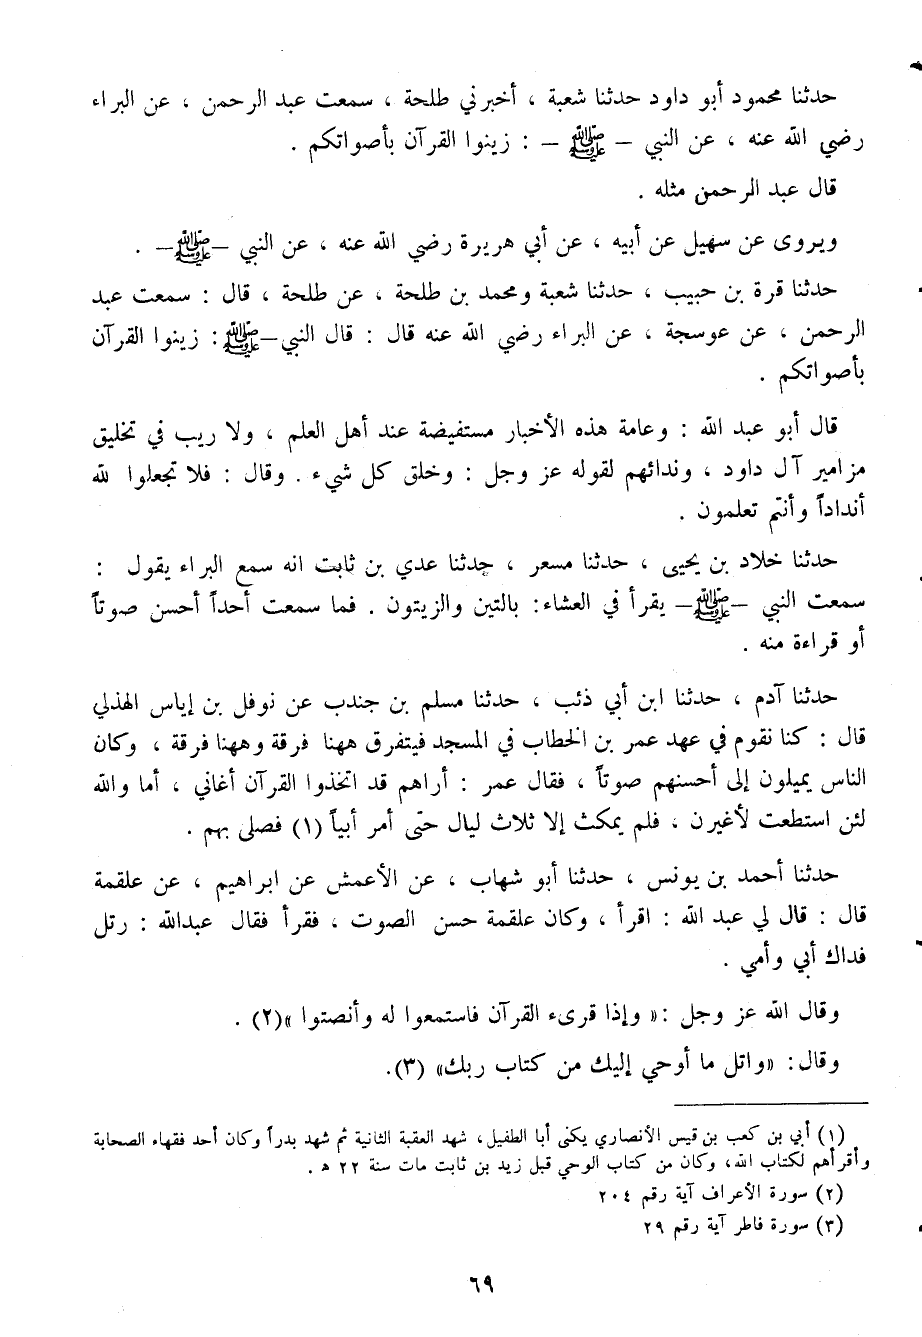 حدثنا محمود أبو داود حدثنا شعبة ، أخبرني طلحة ، سمعت عبد الرحمن ، عن البراء
رضي الله عنه ، عن النبي — ﷺ — : زينوا القرآن بأصواتكم .
قال عبد الرحمن مثله .
ويروى عن سهيل عن أبيه ، عن أبي هريرة رضي الله عنه ، عن النبي —ﷺ— .
حدثنا قرة بن حبيب ، حدثنا شعبة ومحمد بن طلحة ، عن طلحة ، قال : سمعت عبد
الرحمن ، عن عوسجة ، عن البراء رضي الله عنه قال : قال النبي—ﷺ: زينوا القرآن
بأصواتكم .
قال أبو عبد الله : وعامة هذه الأخبار مستفيضة عند أهل العلم ، ولا ريب في تخليق
مزامير آل داود ، وندائهم لقوله عز وجل : وخلق كل شيء . وقال : فلا تجعلوا لله
أنداداً وأنتم تعلمون .
حدثنا خلاد بن يحيى ، حدثنا مسعر ، حدثنا عدي بن ثابت انه سمع البراء يقول :
سمعت النبي —ﷺ— يقرأ في العشاء: بالتين والزيتون . فما سمعت أحداً أحسن صوتاً
أو قراءة منه .
حدثنا آدم ، حدثنا ابن أبي ذئب ، حدثنا مسلم بن جندب عن نوفل بن إياس الهذلي
قال : كنا نقوم في عهد عمر بن الخطاب في المسجد فيتفرق ههنا فرقة وههنا فرقة ، وكان
الناس يميلون إلى أحسنهم صوتاً ، فقال عمر : أراهم قد اتخذوا القرآن أغاني ، أما والله
لئن استطعت لأغيرن ، فلم يمكث إلا ثلاث ليال حتى أمر أبياً (١) فصلى بهم .
حدثنا أحمد بن يونس ، حدثنا أبو شهاب ، عن الأعمش عن ابراهيم ، عن علقمة
قال : قال لي عبد الله : اقرأ ، وكان علقمة حسن الصوت ، فقرأ فقال عبدالله : رتل
فداك أبي وأمي .
وقال الله عز وجل :« وإذا قرىء القرآن فاستمعوا له وأنصتوا »(٢) .
وقال: «واتل ما أوحي إليك من كتاب ربك» (٣).
(١) أبي بن كعب بن قيس الأنصاري يكنى أبا الطفيل، شهد العقبة الثانية ثم شهد بدراً وكان أحد فقهاء الصحابة
وأقرأهم لكتاب الله، وكان من كتاب الوحي قبل زيد بن ثابت مات سنة ٢٢ ه .
(٢) سورة الأعراف آية رقم ٢٠٤
(٣) سورة فاطر آية رقم ٢٩
٦٩